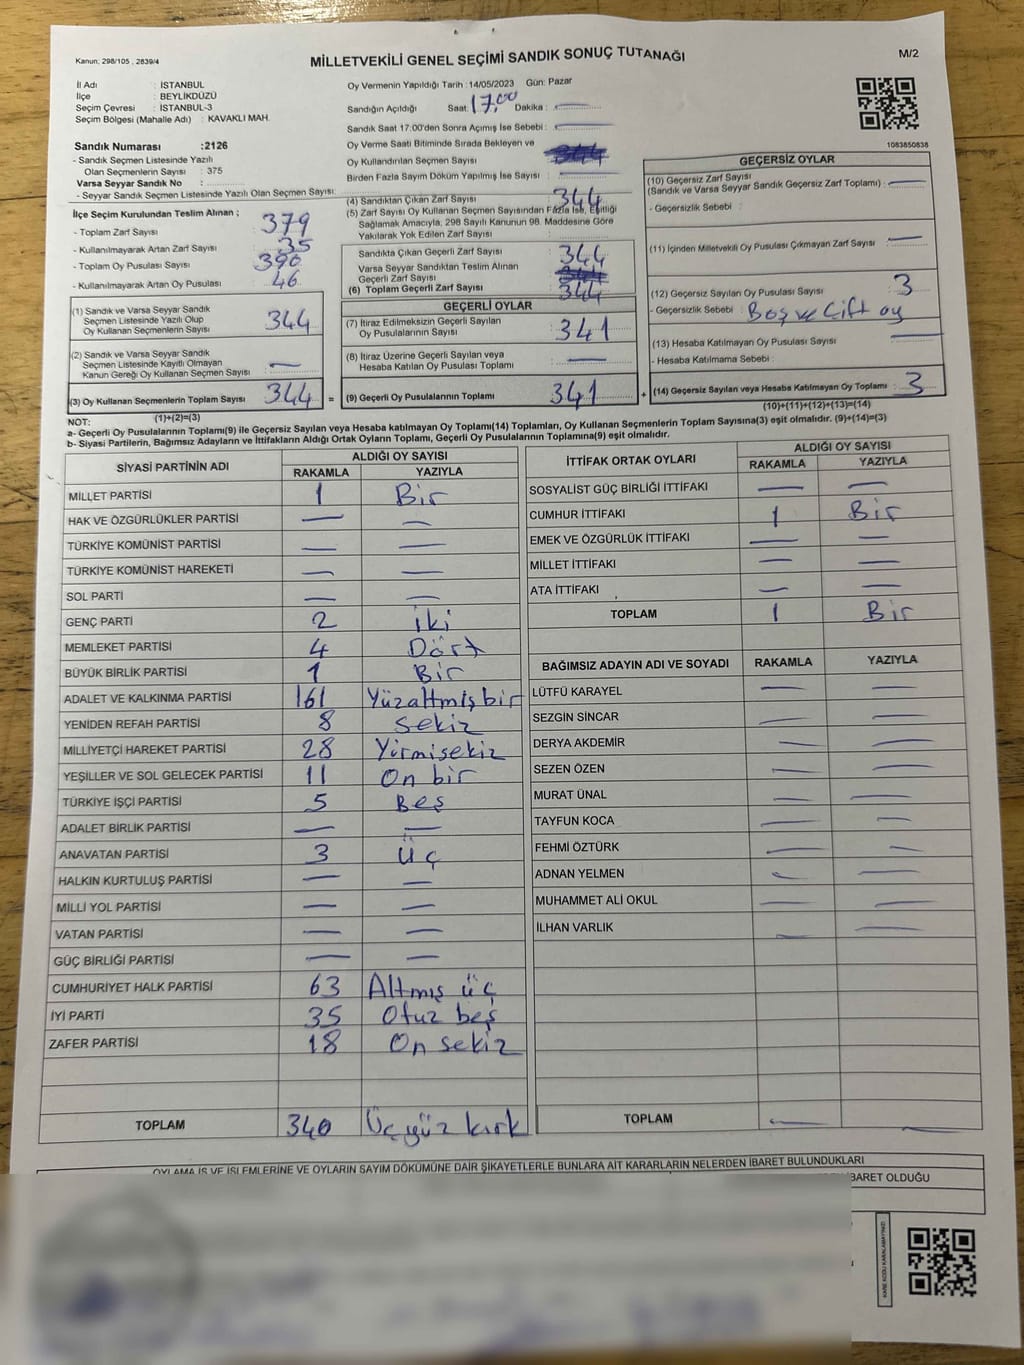 Kanun; 298/105 , 2839/4
MİLLETVEKİLİ GENEL SEÇİMİ SANDIK SONUÇ TUTANAĞI
M/2
İl Adı : İSTANBUL
İlçe : BEYLİKDÜZÜ
Seçim Çevresi : İSTANBUL-3
Seçim Bölgesi (Mahalle Adı) : KAVAKLI MAH.
Oy Vermenin Yapıldığı Tarih : 14/05/2023 Gün: Pazar
Sandığın Açıldığı Saat: 17,00 Dakika : —
Sandık Saat 17:00'den Sonra Açımış İse Sebebi : —
Oy Verme Saati Bitiminde Sırada Bekleyen ve
Oy Kullandırılan Seçmen Sayısı
Birden Fazla Sayım Döküm Yapılmış İse Sayısı : —
1083850838
Sandık Numarası :2126
- Sandık Seçmen Listesinde Yazılı
Olan Seçmenlerin Sayısı : 375
Varsa Seyyar Sandık No :
- Seyyar Sandık Seçmen Listesinde Yazılı Olan Seçmen Sayısı:
İlçe Seçim Kurulundan Teslim Alınan ;
- Toplam Zarf Sayısı : 379
- Kullanılmayarak Artan Zarf Sayısı : 35
- Toplam Oy Pusulası Sayısı : 390
- Kullanılmayarak Artan Oy Pusulası : 46
(1) Sandık ve Varsa Seyyar Sandık
Seçmen Listesinde Yazılı Olup
Oy Kullanan Seçmenlerin Sayısı : 344
(2) Sandık ve Varsa Seyyar Sandık
Seçmen Listesinde Kayıtlı Olmayan
Kanun Gereği Oy Kullanan Seçmen Sayısı : —
(3) Oy Kullanan Seçmenlerin Toplam Sayısı : 344 =
(1)+(2)=(3)
(4) Sandıktan Çıkan Zarf Sayısı : 344
(5) Zarf Sayısı Oy Kullanan Seçmen Sayısından Fazla İse, Eşitliği
Sağlamak Amacıyla, 298 Sayılı Kanunun 98. Maddesine Göre
Yakılarak Yok Edilen Zarf Sayısı :
Sandıkta Çıkan Geçerli Zarf Sayısı : 344
Varsa Seyyar Sandıktan Teslim Alınan
Geçerli Zarf Sayısı
(6) Toplam Geçerli Zarf Sayısı : 344
GEÇERLİ OYLAR
(7) İtiraz Edilmeksizin Geçerli Sayılan
Oy Pusulalarının Sayısı : 341
(8) İtiraz Üzerine Geçerli Sayılan veya
Hesaba Katılan Oy Pusulası Toplamı : —
(9) Geçerli Oy Pusulalarının Toplamı : 341 +
GEÇERSİZ OYLAR
(10) Geçersiz Zarf Sayısı
(Sandık ve Varsa Seyyar Sandık Geçersiz Zarf Toplamı) : —
- Geçersizlik Sebebi :
(11) İçinden Milletvekili Oy Pusulası Çıkmayan Zarf Sayısı : —
(12) Geçersiz Sayılan Oy Pusulası Sayısı : 3
- Geçersizlik Sebebi : Boş ve Çift oy
(13) Hesaba Katılmayan Oy Pusulası Sayısı : —
- Hesaba Katılmama Sebebi :
(14) Geçersiz Sayılan veya Hesaba Katılmayan Oy Toplamı : 3
(10)+(11)+(12)+(13)=(14)
NOT:
a- Geçerli Oy Pusulalarının Toplamı(9) ile Geçersiz Sayılan veya Hesaba katılmayan Oy Toplamı(14) Toplamları, Oy Kullanan Seçmenlerin Toplam Sayısına(3) eşit olmalıdır. (9)+(14)=(3)
b- Siyasi Partilerin, Bağımsız Adayların ve İttifakların Aldığı Ortak Oyların Toplamı, Geçerli Oy Pusulalarının Toplamına(9) eşit olmalıdır.
SİYASİ PARTİNİN ADI ALDIĞI OY SAYISI
RAKAMLA YAZIYLA
MİLLET PARTİSİ 1 Bir
HAK VE ÖZGÜRLÜKLER PARTİSİ — —
TÜRKİYE KOMÜNİST PARTİSİ — —
TÜRKİYE KOMÜNİST HAREKETİ — —
SOL PARTİ — —
GENÇ PARTİ 2 İki
MEMLEKET PARTİSİ 4 Dört
BÜYÜK BİRLİK PARTİSİ 1 Bir
ADALET VE KALKINMA PARTİSİ 161 Yüzaltmışbir
YENİDEN REFAH PARTİSİ 8 sekiz
MİLLİYETÇİ HAREKET PARTİSİ 28 Yirmisekiz
YEŞİLLER VE SOL GELECEK PARTİSİ 11 On bir
TÜRKİYE İŞÇİ PARTİSİ 5 Beş
ADALET BİRLİK PARTİSİ — —
ANAVATAN PARTİSİ 3 üç
HALKIN KURTULUŞ PARTİSİ — —
MİLLİ YOL PARTİSİ — —
VATAN PARTİSİ — —
GÜÇ BİRLİĞİ PARTİSİ — —
CUMHURİYET HALK PARTİSİ 63 Altmış üç
İYİ PARTİ 35 Otuz beş
ZAFER PARTİSİ 18 On sekiz
TOPLAM 340 Üçyüz kırk
İTTİFAK ORTAK OYLARI ALDIĞI OY SAYISI
RAKAMLA YAZIYLA
SOSYALİST GÜÇ BİRLİĞİ İTTİFAKI — —
CUMHUR İTTİFAKI 1 Bir
EMEK VE ÖZGÜRLÜK İTTİFAKI — —
MİLLET İTTİFAKI — —
ATA İTTİFAKI — —
TOPLAM 1 Bir
BAĞIMSIZ ADAYIN ADI VE SOYADI RAKAMLA YAZIYLA
LÜTFÜ KARAYEL — —
SEZGİN SİNCAR — —
DERYA AKDEMİR — —
SEZEN ÖZEN — —
MURAT ÜNAL — —
TAYFUN KOCA — —
FEHMİ ÖZTÜRK — —
ADNAN YELMEN — —
MUHAMMET ALİ OKUL — —
İLHAN VARLIK — —
TOPLAM — —
OYLAMA İŞ VE İŞLEMLERİNE VE OYLARIN SAYIM DÖKÜMÜNE DAİR ŞİKAYETLERLE BUNLARA AİT KARARLARIN NELERDEN İBARET BULUNDUKLARI
İBARET OLDUĞU
KARE KODU KARALAMAYINIZ!